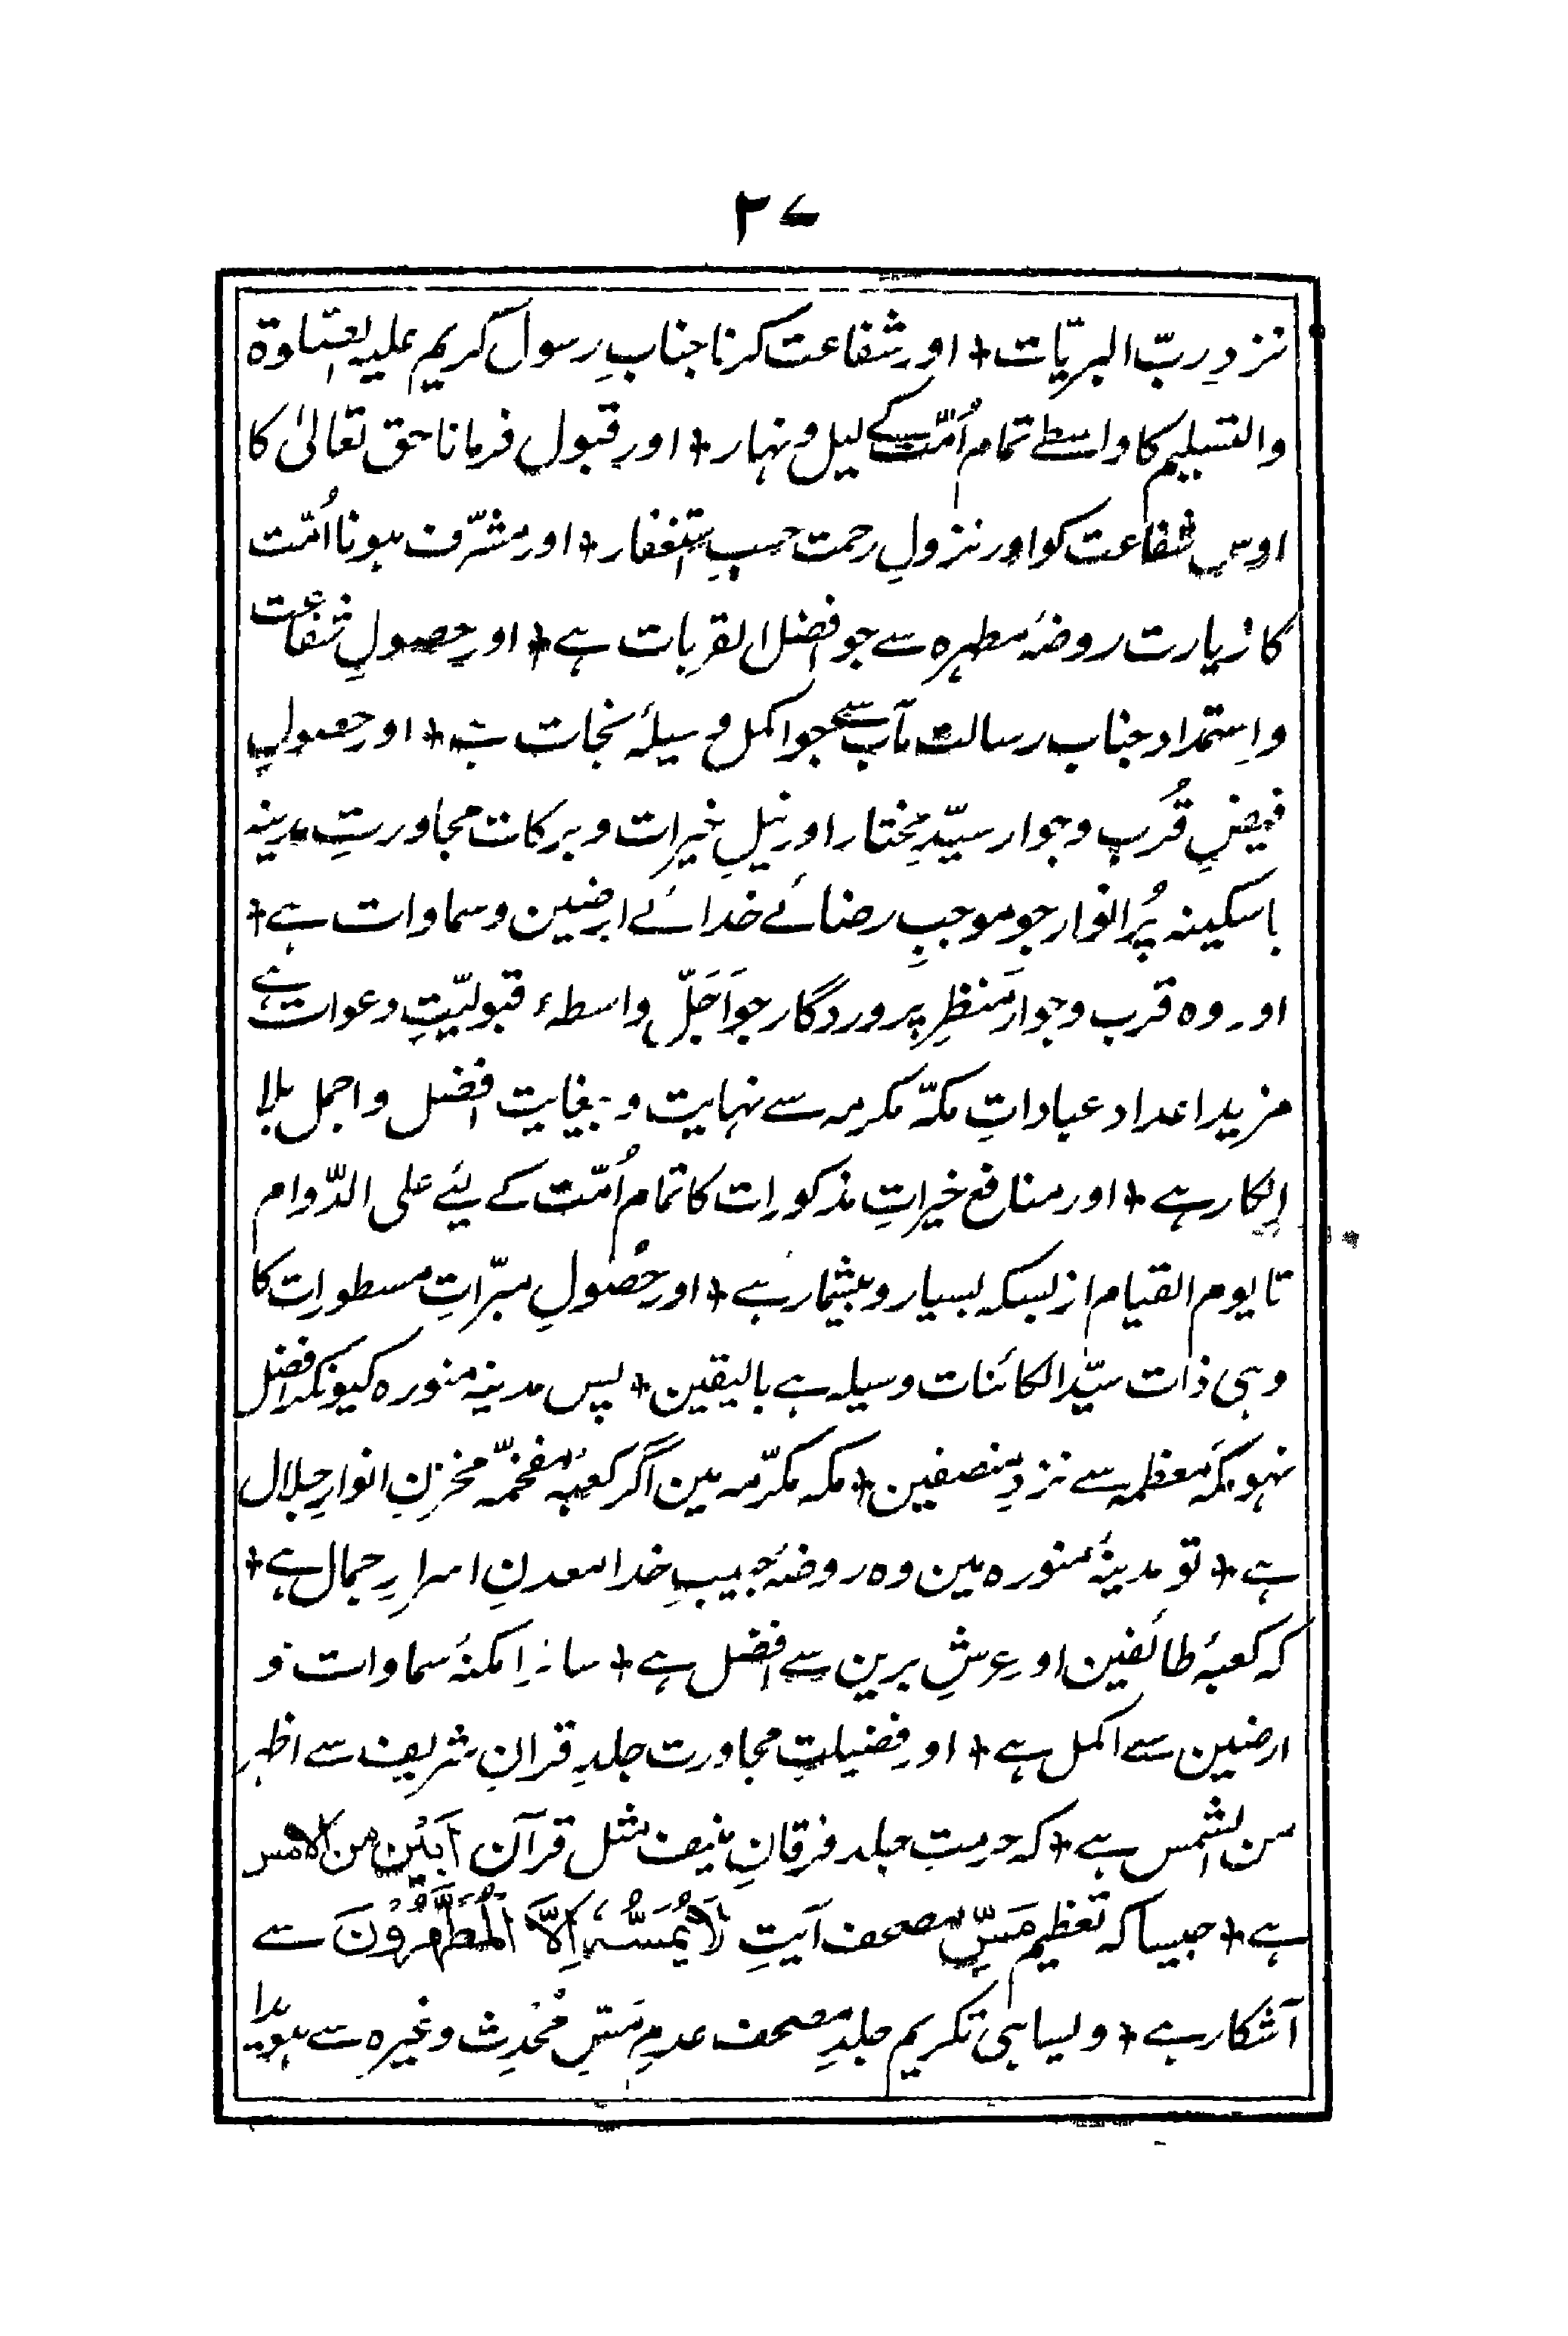 ۲۷
نزدِ ربّ البریّات ٭ اور شفاعت کرنا جنابِ رسول کریم علیہ الصّلوة
والتسلیم کا واسطے تمام اُمّت کے لیل و نہار ٭ اور قبول فرمانا حق تعالیٰ کا
اوس شفاعت کو اور نزولِ رحمت حسبِ استغفار ٭ اور مشرّف ہونا اُمّت
کا زیارت روضۂ مطہرہ سے جو افضل القربات ہے ٭ اور حصولِ شفاعت
و اِستمداد جناب رسالت مآب سے جو اکمل وسیلۂ نجات ہے ٭ اور حصولِ
فیضِ قُرب و جوار سیّدِ مختار اور نیلِ خیرات و برکات مجاورتِ مدینہ
باسکینہ پُر انوار جو موجبِ رضائے خدائے ارضین و سماوات ہے ٭
اور وہ قرب و جوار مَنظرِ پروردگار جو اَجَلّ واسطہء قبولیّتِ دعوات ہے
مزید اعداد عباداتِ مکّہ مکرمہ سے نہایت و بغایت افضل و اجمل بلا
اِنکار ہے ٭ اور منافع خیراتِ مذکورات کا تمام اُمّت کے لئے علی الدّوام
تا یوم القیام از بسکہ بسیار و بیشمار ہے ٭ اور حُصولِ مبرّاتِ مسطورات کا
وہی ذات سیّد الکائنات وسیلہ ہے بالیقین ٭ پس مدینہ منورہ کیونکر افضل
نہو مکّۂ معظمہ سے نزدِ منصفین ٭ مکہ مکرّمہ مین اگر کعبۂ مفخمّہ مخزنِ انوارِ جلال
ہے ٭ تو مدینۂ منورہ مین وہ روضۂ حبیبِ خدا معدنِ اسرارِ جمال ہے ٭
کہ کعبۂ طائفین اور عرشِ برین سے افضل ہے ٭ سائرِ امکنۂ سماوات و
ارضین سے اکمل ہے ٭ اور فضیلتِ مجاورت جلدِ قرانِ شریف سے اظہر
من الشمس ہے ٭ کہ حرمتِ جلد فرقانِ منیف مثل قرآن اَبیَن من الامس
ہے ٭ جیسا کہ تعظیم مَسِّ مصحف آیتِ لَا یَمَسُّہٗ اِلَّا الْمُطَهَّرُوْنَ سے
آشکار ہے ٭ ویسا ہی تکریم جلدِ مصحف عدمِ مَسِّ مُحدِث وغیرہ سے ہویدا